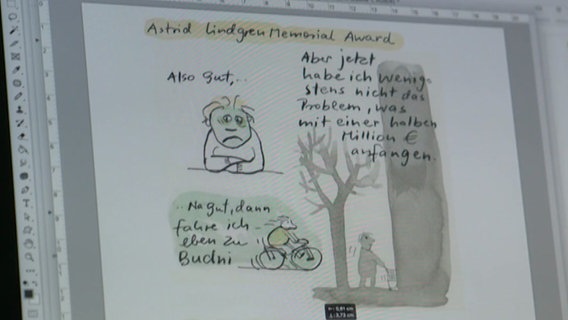 Astrid Lindgren Memorial Award
Also gut,..
Aber jetzt
habe ich wenig-
stens nicht das
Problem, was
mit einer halben
Million €
anfangen.
..Na gut, dann
fahre ich
eben zu
Budni